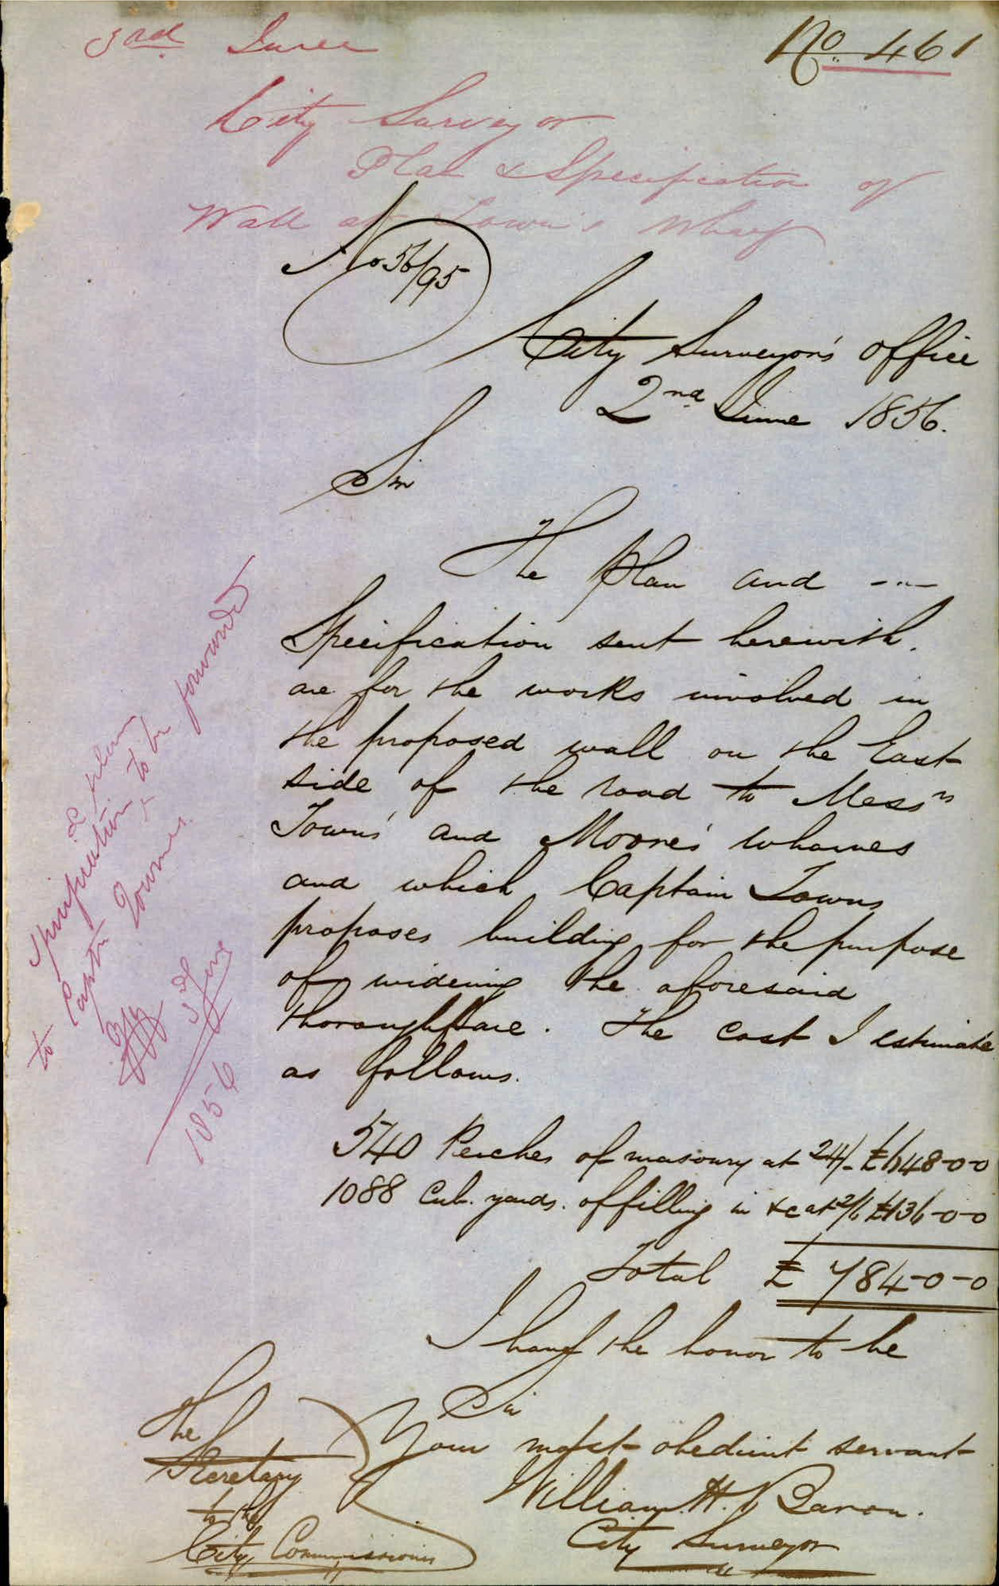 3rd June
No. 461
City Surveyor
Plan & Specification of
Wall at Town's Wharf
No 56/95
City Surveyor's Office
2nd June 1856.
Sir
The Plan and
Specification sent herewith.
are for the works involved in
the proposed wall on the East
side of the road to Messrs
Towns' and Moore's wharves
and which Captain Towns
proposes building for the purpose
of widening the aforesaid
thoroughfare. The cost I estimate
as follows.
540 Perches of masonry at 24/- £648-0-0
1088 Cub. yards. of filling in &c at 2/6 £136-0-0
Total £784-0-0
I have the honor to be
Sir
Your most obedient servant
William H. Baron.
City Surveyor
The
Secretary
to the
City Commissioners
Specification & plan
to be forwarded
to Captn Townes.
3d June
1856